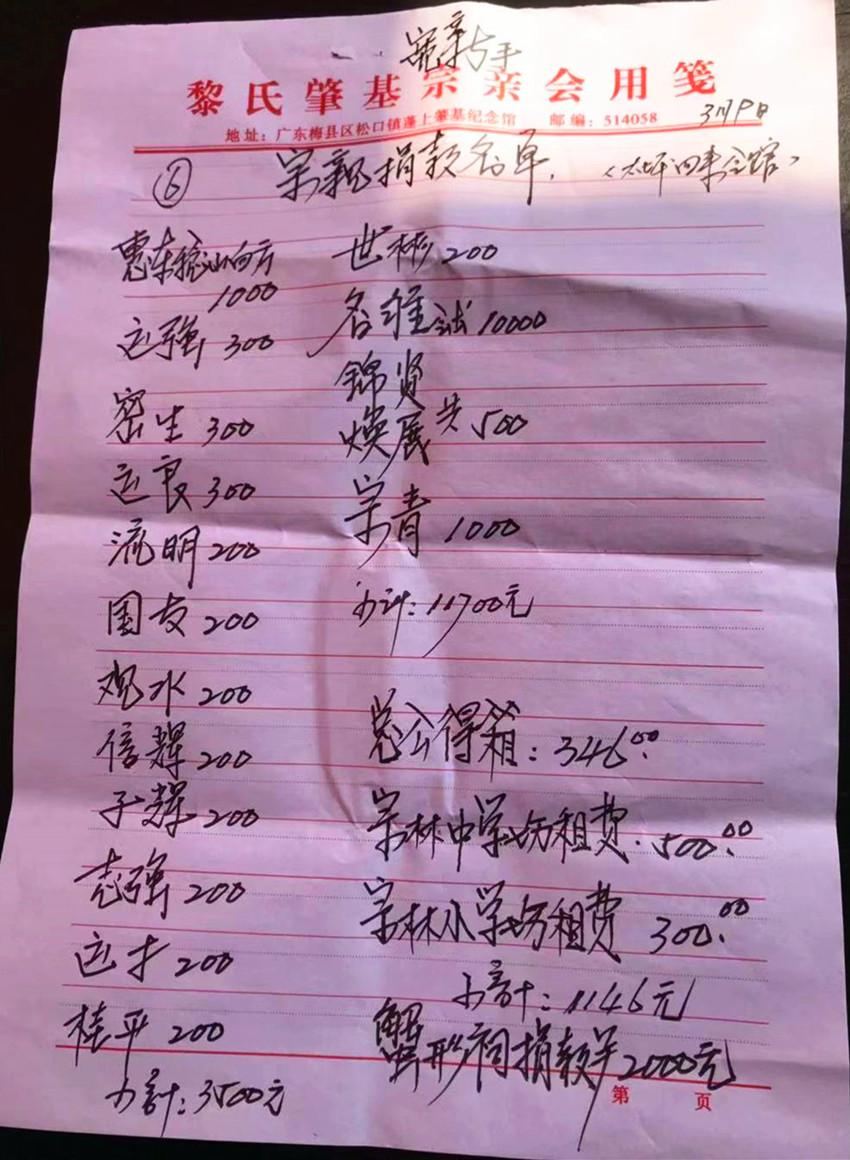 宪亲与平
黎氏肇基宗亲会用笺
地址：广东梅县区松口镇蓬上肇基纪念馆 邮编：514058
3月9日
⑥ 宗亲捐款名单.
惠东稔山向方
1000
运强 300
密生 300
运良 300
流明 200
国友 200
观水 200
信辉 200
子辉 200
志强 200
运才 200
桂平 200
小计：3500元
世彬 200
名雄 10000
锦贤
焕展 共500
宗青 1000
小计：11700元
总公得箱：346.00
宗林中学坊租费.500.00
宗林小学坊租费 300.00
小计：1146元
蟹形祠捐款 2000元
第 页